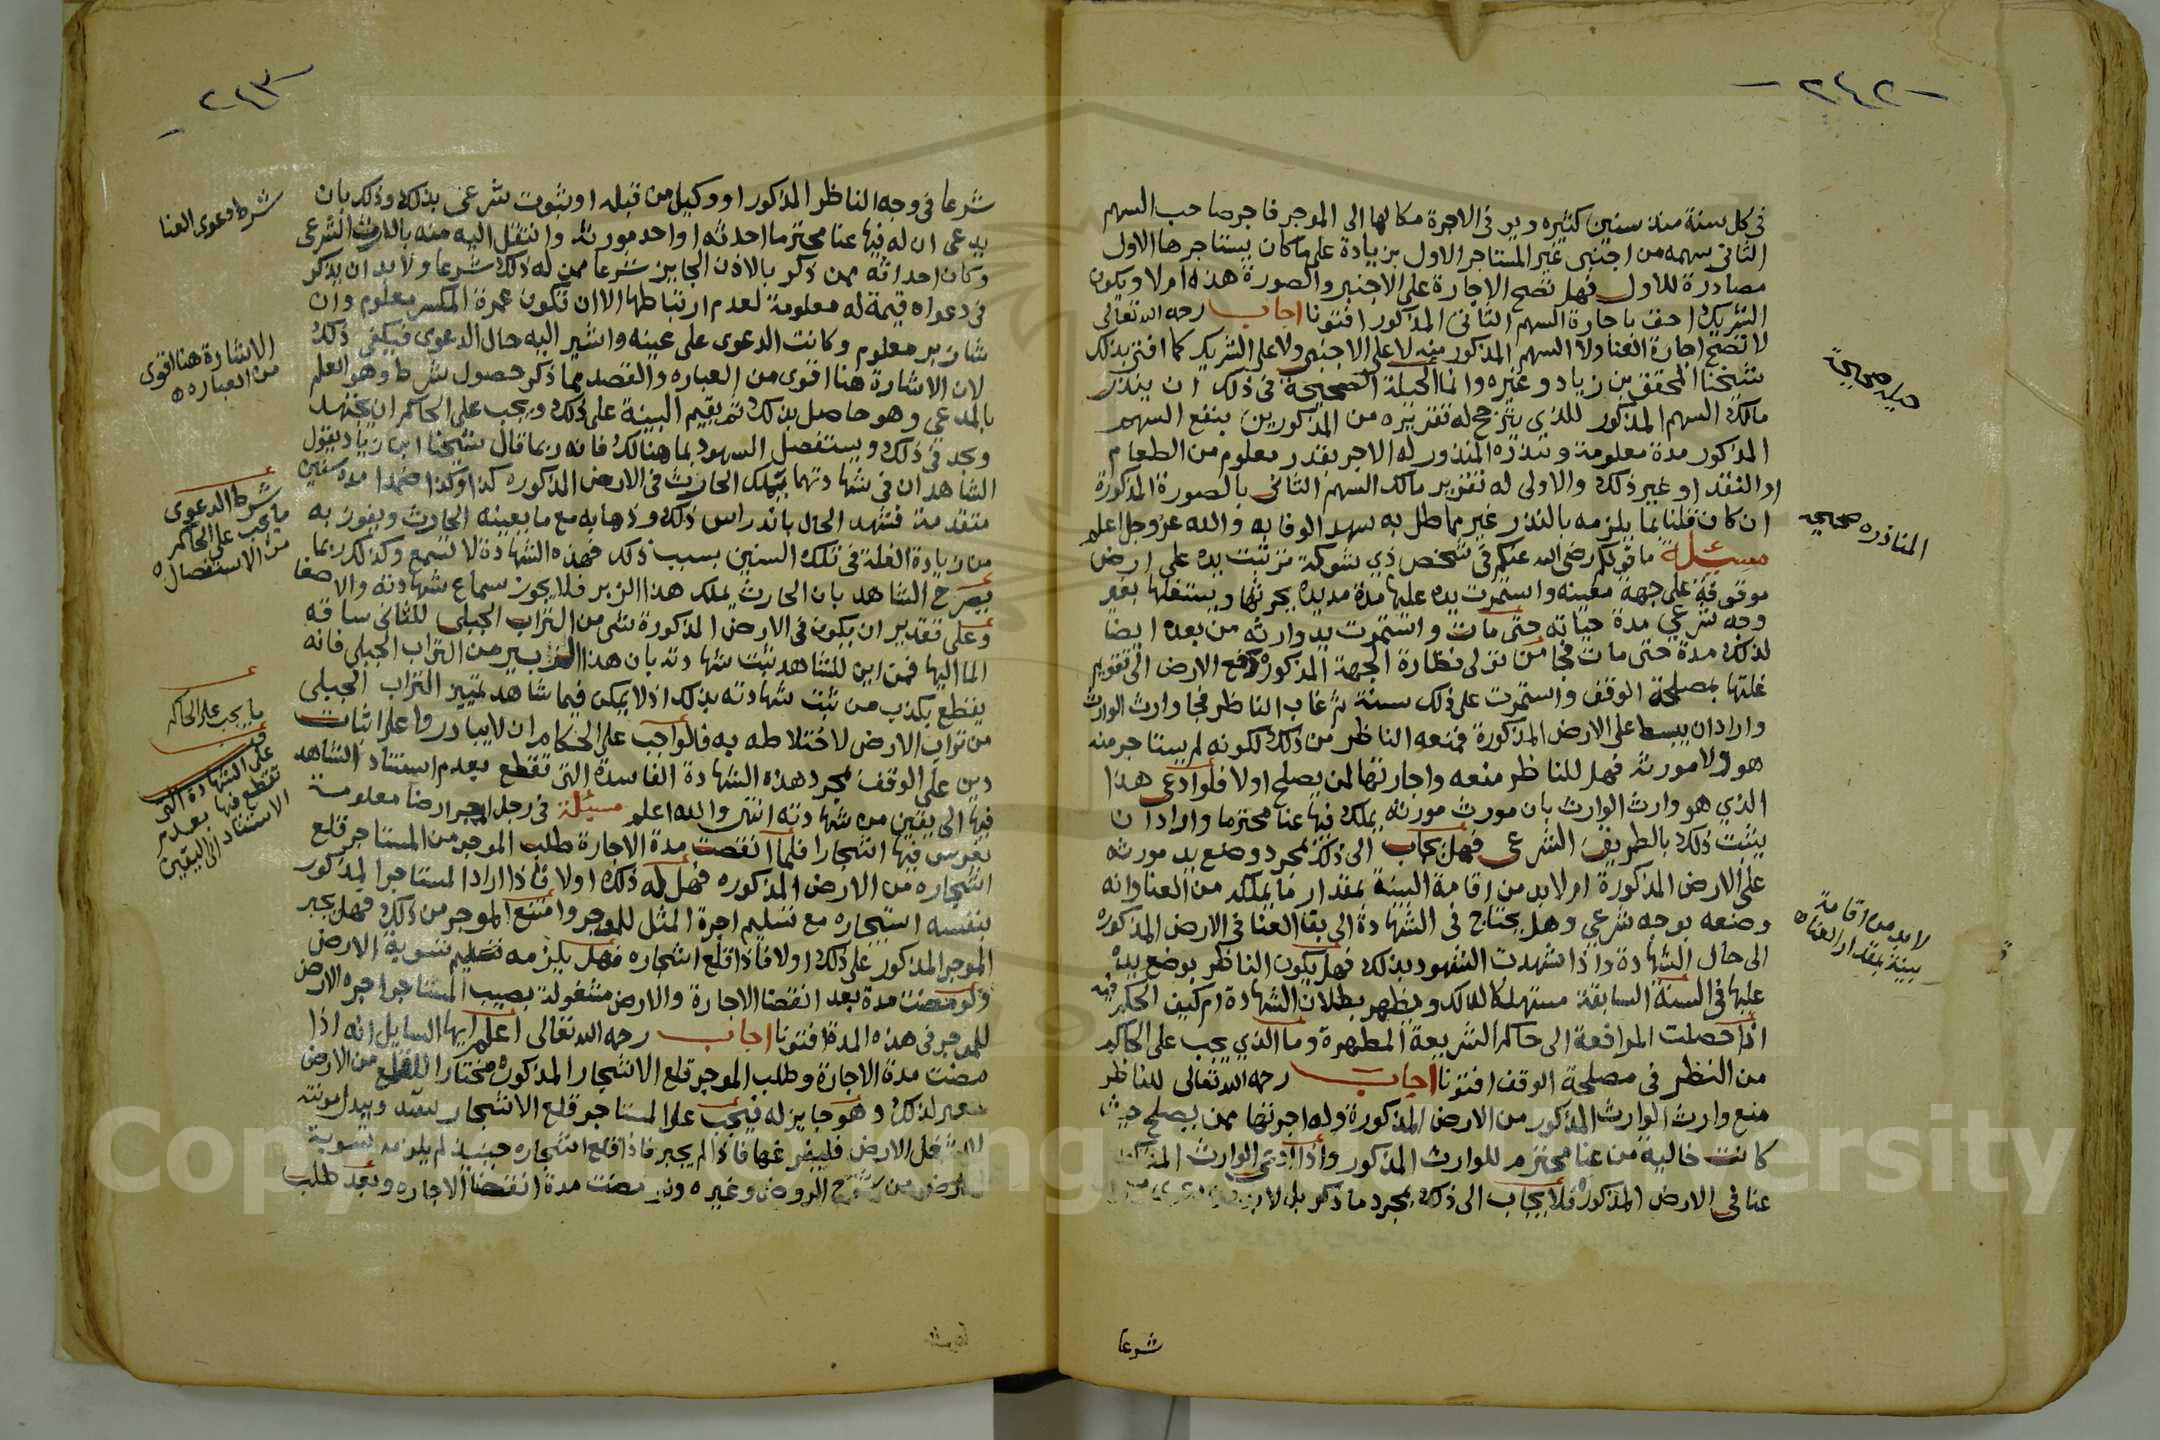 -٢٤٢-
في كل سنة منذ سنين كثيره ويزيد في الاجرة مكا لها الى الموجر فاجر صاحب السهم
الثاني سهمه من اجنبي غير المستاجر الاول بزيادة على ما كان يستاجرها الاول
مصادرة للاول فهل تصح الاجارة على الاجنبي والصورة هذه ام لا ويكون
الشريك احق باجارة السهم الثاني المذكور افتونا اجاب رحمه الله تعالى
لا تصح اجارة العنا ولا السهم المذكور منه لا على الاجنبي ولا على الشريك كما افتى بذلك
شيخنا المحقق بن زياد وغيره وانما الحيلة الصحيحة في ذلك ان ينذر
مالك السهم المذكور للذي يترجح له تقريره من المذكورين بنفع السهم
المذكور مدة معلومة وينذره المنذور له الاجر بقدر معلوم من الطعام
او النقد او غير ذلك والاولى له تقرير مالك السهم الثاني بالصورة المذكورة
ان كان قلنا بما يلزمه بالنذر غير مماطل به سهل الوفا به والله عز وجل اعلم
مسئلة ما قولكم رضي الله عنكم في شخص ذي شوكة ترتبت يده على ارض
موقوفة على جهة معينه واستمرت يده عليها مدة مديده يحرثها ويستغلها بغير
وجه شرعي مدة حياته حتى مات واستمرت يد وارثه من بعده ايضا
لذلك مدة حتى مات فجا من تولى نظارة الجهة المذكوره رفع الارض الى تقويم
غلتها بمصلحة الوقف واستمرت على ذلك سنة ثم غاب الناظر فجا وارث الوارث
واراد ان يبسط على الارض المذكورة فمنعه الناظر من ذلك لكونه لم يستاجر منه
هو ولا مورثه فهل للناظر منعه واجارتها لمن يصلح اولا فلو ادعى هذا
الذي هو وارث الوارث بان مورث مورثه يملك فيها عنا محترما واراد ان
يثبت ذلك بالطريق الشرعي فهل يجاب الى ذلك بمجرد وضع يد مورثه
على الارض المذكورة ام لا بد من اقامة البينة بمقدار ما يملكه من العنا وانه
وضعه بوجه شرعي وهل يحتاج في الشهادة الى بقا العنا في الارض المذكوره
الى حال الشهادة واذا شهدت الشهود بذلك فهل يكون الناظر بوضع يده
عليها في السنة السابقة مستهلكا لذلك ويظهر بطلان الشهادة ام كيف الحكم فيه
اذا حصلت المرافعة الى حاكم الشريعة المطهرة وما الذي يجب على الحاكم
من النظر في مصلحة الوقف افتونا اجاب رحمه الله تعالى للناظر
منع وارث الوارث المذكور من الارض المذكورة وله اجرتها ممن يصلح حيث
كانت خالية من عنا محترم للوارث المذكور واذا ادعى الوارث المذكور
عنا في الارض المذكوره فلا يجاب الى ذلك بمجرد ما ذكر بل لا بد
شرعا
حيله صحيحة
المناذره صحيحه
لا بد من اقامة
بينة بمقدار العناء
-٢٤٣-
شرعا في وجه الناظر المذكور او وكيل من قبله او ثبوت شرعي بذلك وذلك بان
يدعى ان له فيها عنا محترما احدثه او احد مورثه وانتقل اليه منه بالارث الشرعي
وكان احداثه ممن ذكر بالاذن الجايز شرعا ممن له ذلك شرعا ولا بد ان يذكر
في دعواه قيمة له معلومة لعدم ارتباطها الا ان تكون عمرة المكسر معلوم وان
شان بر معلوم وكانت الدعوى على عينه واشير اليه حال الدعوى فيكفي ذلك
لان الاشارة هنا اقوى من العباره والقصد بما ذكر حصول شرط وهو العلم
بالمدعي وهو حاصل بذلك ثم يقيم البينة على ذلك ويجب على الحاكم ان يجتهد
ويجد في ذلك ويستفصل الشهود بما هنالك فانه ربما قال شيخنا ابن زياد يقول
الشاهدان في شهادتهما بتملك الحارث في الارض المذكوره كذا وكذا ضمدا مدة سنين
متقدمة فتشهد الحال باندراس ذلك وذهابه مع ما يعينه الحارث ويفوز به
من زيادة الغلة في تلك السنين بسبب ذلك فهذه الشهادة لا تسمع وكذلك ربما
يصرح الشاهد بان الحارث يملك هذا الزبر فلا يجوز سماع شهادته والاصغا
وعلى تقدير ان يكون في الارض المذكورة شي من التراب الجبلي للثاني ساقه
الما اليها فمن اين للشاهد تثبت شهادته بان هذا الزبير من التراب الجبلي فانه
يقطع بكذب من ثبت شهادته بذلك اذ لا يمكن فيما شاهد تمييز التراب الجبلي
من تراب الارض لاختلاطه به فالواجب على الحكام ان لا يبادروا على اثبات
دين على الوقف بمجرد هذه الشهادة الفاسدة التي تقطع بعدم استناد الشاهد
فيها الى يقين من شهادته انتهى والله اعلم مسئلة في رجل اجر ارضا معلومة
يغرس فيها اشجارا فلما انقضت مدة الاجارة طلب الموجر من المستاجر قلع
اشجاره من الارض المذكوره فهل له ذلك اولا فاذا اراد المستاجر المذكور
بنفسه استيجاره مع تسليم اجرة المثل للموجر وامتنع الموجر من ذلك فهل يجبر
الموجر المذكور على ذلك اولا فاذا قلع اشجاره فهل يلزمه تسليم تسوية الارض
ولو مضت مدة بعد انقضا الاجارة والارض مشغولة بصيب المستاجر اجره الارض
للموجر في هذه المدة افتونا اجاب رحمه الله تعالى اعلم ايها السايل انه اذا
مضت مدة الاجارة وطلب الموجر قلع الاشجار المذكوره مختارا للقلع من الارض
لذلك وهو جايز له فيجب على المستاجر قلع الاشجار ويبدل مونته
الارض فليفرغها فاذا لم يجبر فاذا قلع اشجاره حينيذ لم يلزمه تسوية
الارض من الروض وغيره وان مضت مدة انقضا الاجاره وبعد طلب
شرط دعوى العنا
الاشارة هنا اقوى
من العباره
شرط الدعوى
ما يجب على الحاكم
من الاستفصال
ما يجب على الحاكم
على الشهادة التي
تقطع فيها بعدم
الاستناد الى اليقين
Copyright © King Saud University